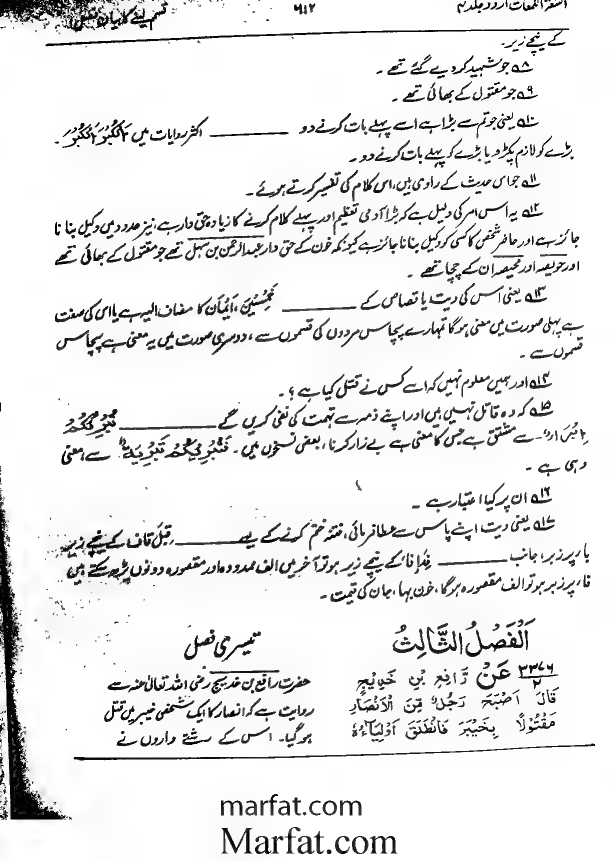 اشعۃ اللمعات اردو جلد ۴ ۶۱۲ قسم لینے کا بیان فصل ۱
کے نیچے زیر۔
۸ جو شہید کر دیے گئے تھے۔
۹ جو مقتول کے بھائی تھے۔
۱۰ یعنی جو تم سے بڑا ہے اسے پہلے بات کرنے دو ——— اکثر روایات میں اَلْکُبْرَ اَلْکُبْرَ۔
بڑے کو لازم پکڑو یا بڑے کو پہلے بات کرنے دو۔
۱۱ جو اس حدیث کے راوی ہیں، اس کلام کی تفسیر کرتے ہوئے۔
۱۲ یہ اس امر کی دلیل ہے کہ بڑا آدمی تعظیم اور پہلے کلام کرنے کا زیادہ حق دار ہے، نیز حدود میں وکیل بنانا
جائز ہے اور حاضر شخص کا کسی کو وکیل بنانا جائز ہے کیونکہ خون کے حق دار عبدالرحمٰن بن سہل تھے جو مقتول کے بھائی تھے
اور حویصہ اور محیصہ ان کے چچا تھے۔
۱۳ یعنی اس کی دیت یا قصاص کے ——— خَمْسِیْنَ، اَیْمَان کا مضاف الیہ ہے یا اس کی صفت
ہے پہلی صورت میں معنی ہوگا تمہارے پچاس مردوں کی قسموں سے، دوسری صورت میں یہ معنی ہے پچاس
قسموں سے۔
۱۴ اور ہمیں معلوم نہیں کہ اسے کس نے قتل کیا ہے؟۔
۱۵ کہ وہ قاتل نہیں ہیں اور اپنے ذمہ سے تہمت کی نفی کریں گے ——— تُبْرِئُکُمْ
اِبْرَاء سے مشتق ہے جس کا معنی ہے بے زار کرنا، بعض نسخوں میں۔ فَتُبَرِّئُکُمْ تَبْرِیَۃٌ سے، معنی
وہی ہے۔
۱۶ ان پر کیا اعتبار ہے۔
۱۷ یعنی دیت اپنے پاس سے عطا فرمائی، فتنہ ختم کرنے کے لیے ——— قِبَل قاف کے نیچے زیر،
باء پر زبر، جانب ——— فِدَا فاء کے نیچے زیر ہو تو آخر میں الف ممدودہ اور مقصورہ دونوں پڑھ سکتے ہیں
فاء پر زبر ہو تو الف مقصورہ ہوگا، خون بہا، جان کی قیمت۔
اَلْفَصْلُ الثَّالِثُ
۳۳۷۶/۲ عَنْ رَافِعِ بْنِ خَدِیْجٍ
قَالَ اَصْبَحَ رَجُلٌ مِّنَ الْاَنْصَارِ
مَقْتُوْلًا بِخَیْبَرَ فَانْطَلَقَ اَوْلِیَاءُہٗ
تیسری فصل
حضرت رافع بن خدیج رضی اللہ تعالیٰ عنہ سے
روایت ہے کہ انصار کا ایک شخص خیبر میں قتل
ہو گیا۔ اس کے رشتے داروں نے
marfat.com
Marfat.com